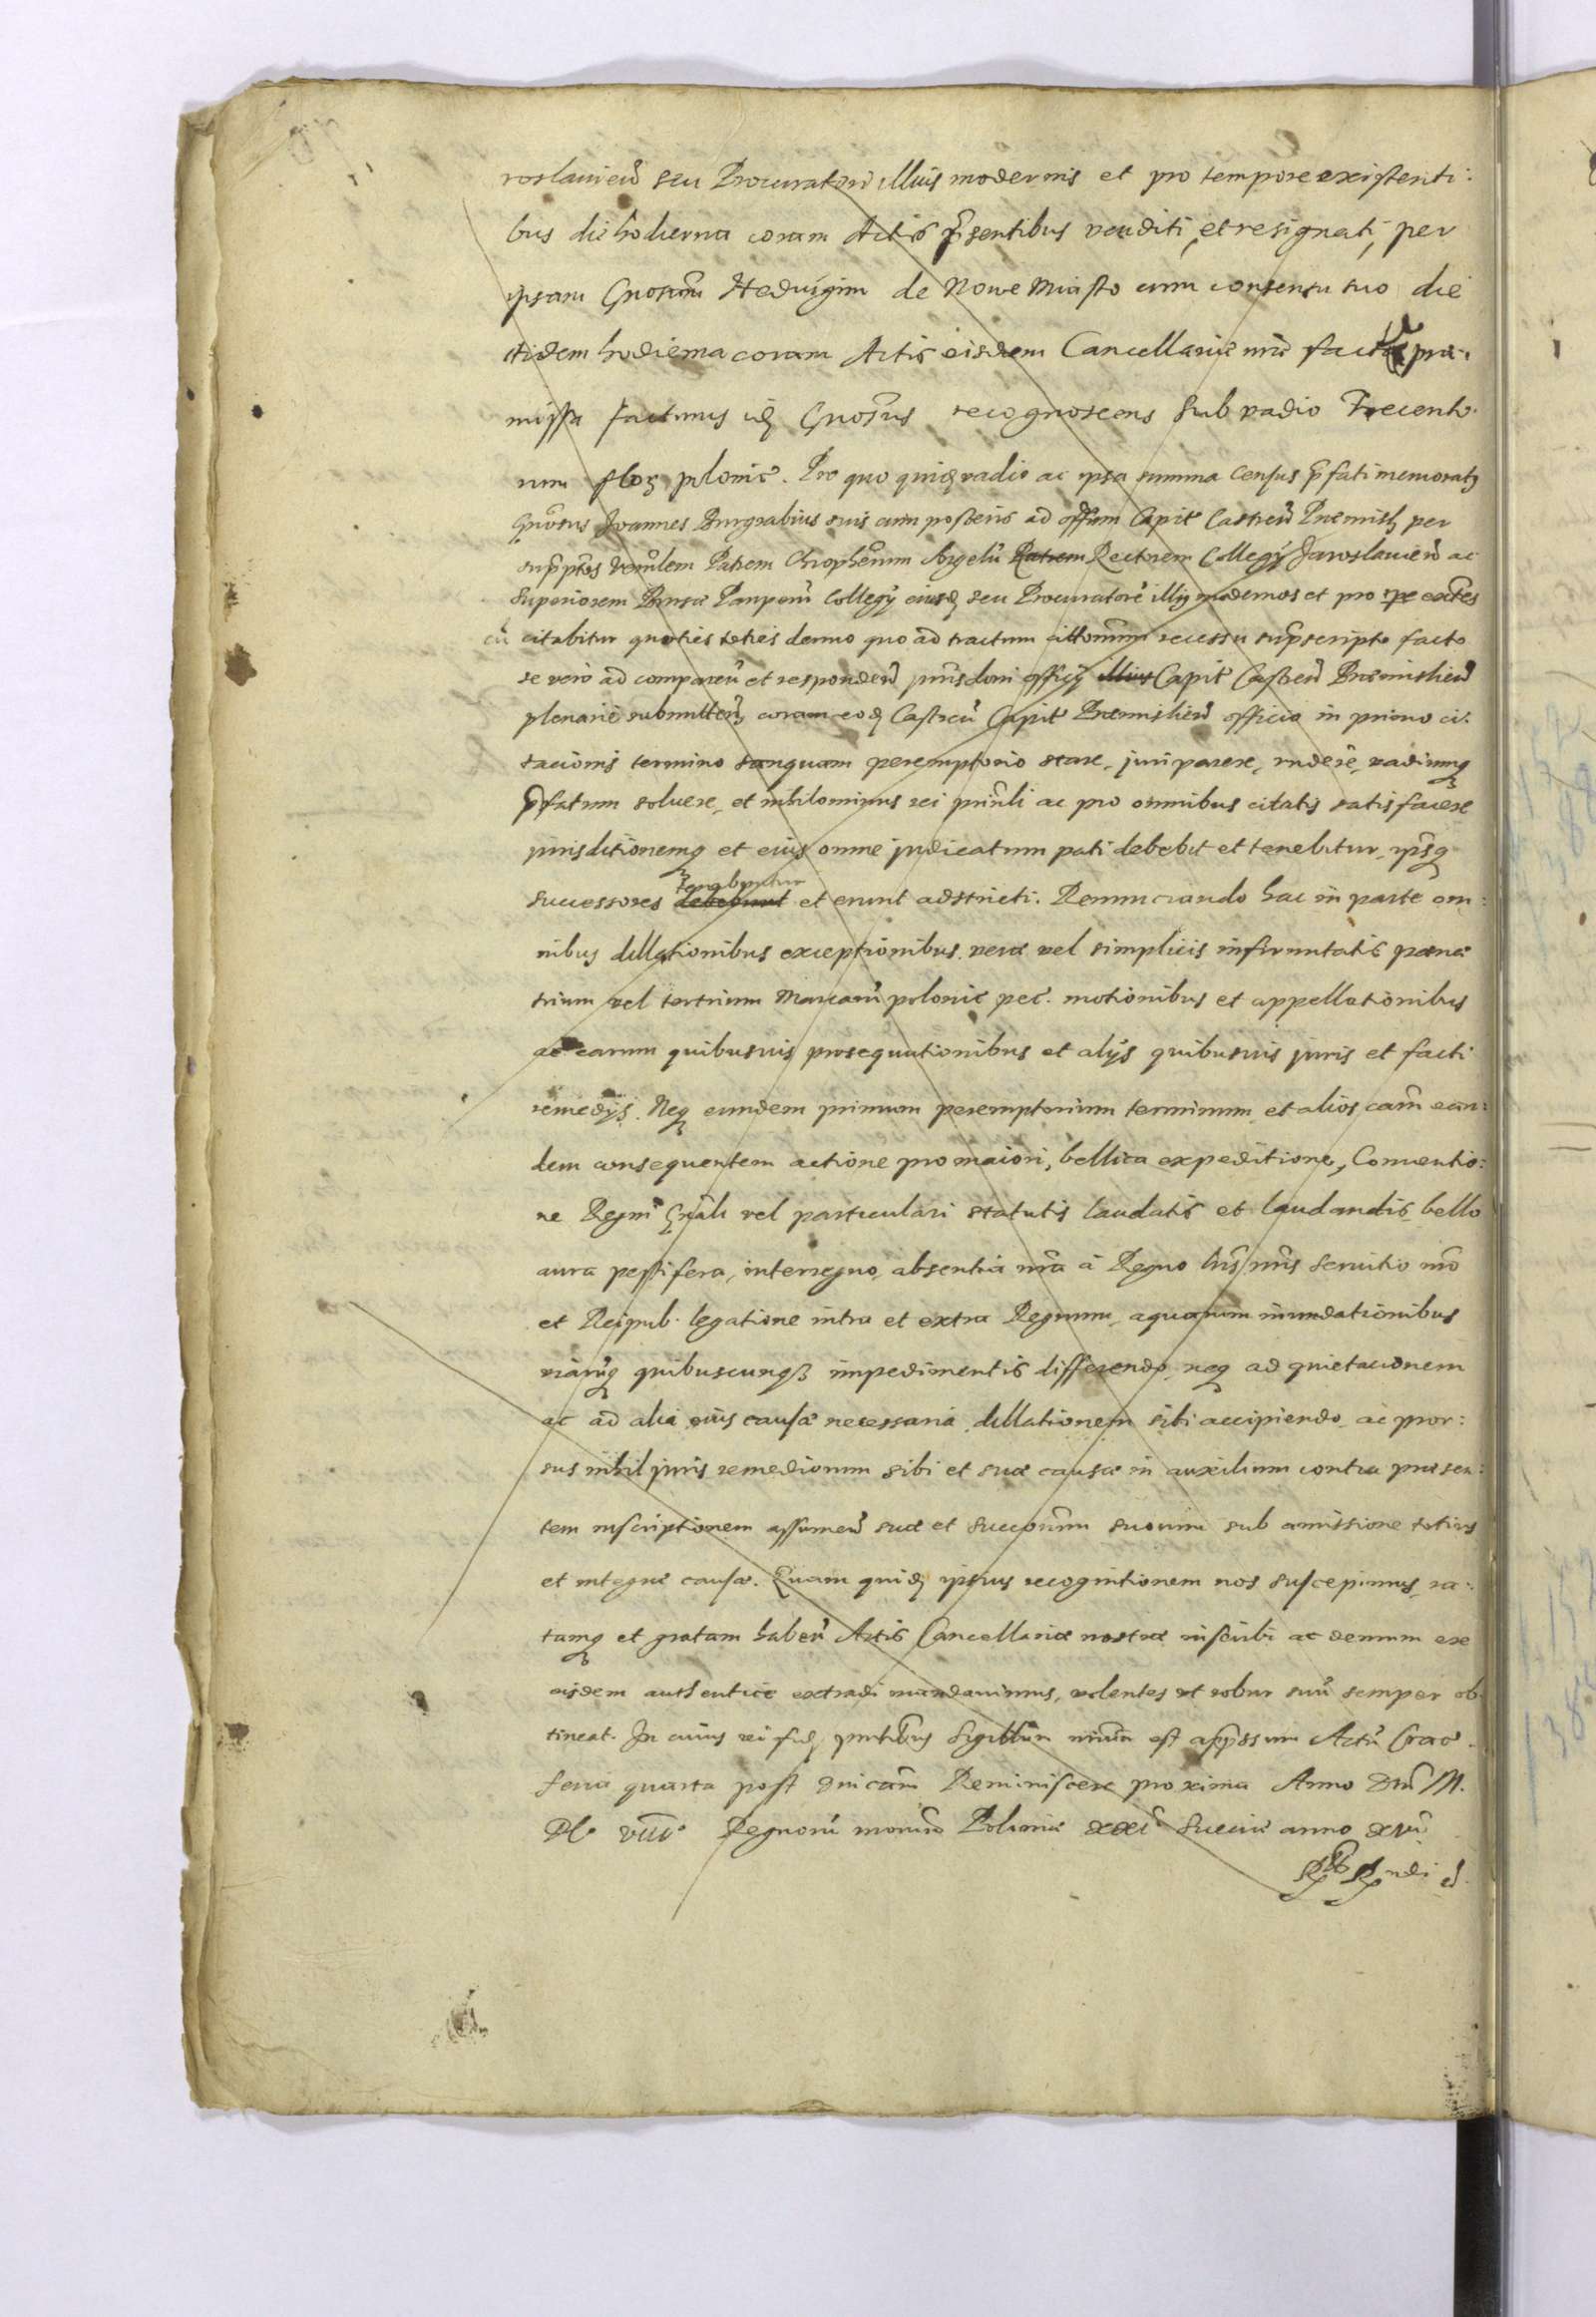 roslavien̄ seu Procuratori illius modernis et pro tempore existenti:
bus die hodierna coram Actis p̄sentibus venditi, et resignati, per
ipsam Gnosam Hedvigim de Nowe Miasto cum consensu suo die
itidem hodierna coram Actis eisdem Cancellariæ nr̄æ facta præ:
missa facturus idē Gnosus recognoscens sub vadio Trecento:
rum flor polonic. Pro quo quidē vadio ac ipsa summa census p̄fati memoratꝫ
Gnosus Joannes Burgrabius suis cum posteris ad offum Capit Castren̄ Præmisl per
supptos Venlem Patrem Chrophorum Angelū Rectorem Collegÿ Jaroslavien̄ ac
Superiorem Bursæ Pauperū Collegÿ eiusdē seu Procuratorē illiꝫ modernos et pro tpe extn̄tes
cū citabitur quoties toties denuo quo ad tractum recessu sup̄scripto facto
se vero ad comparen̄ et responden̄ jurisdoni officÿ illius Capit Castren̄ Præmislien̄
plenarie submitten̄ coram eodē Castren̄ Capit Præmislien̄ officio in primo ci:
tacionis termino tanquam peremptorio stare, juri parere, rndere, vadiumqꝫ
p̄fatum solvere, et nihilominus rei prinli ac pro omnibus citatis satisfacere
jurisditionemqꝫ et eius omne judicatum pati debebit et tenebitur, ipsiqꝫ
successores debebunt tenebuntur et erunt adstricti. Renunciando hac in parte om:
nibus dillationibus exceptionibus veræ vel simplicis infirmitatis pœnæ
trium vel Marcarū polonic pec. motionibus et appellationibus
ac earum quibusvis prosequutionibus et alijs quibusvis juris et facti
remedÿs. Neqꝫ eundem primum peremptorium terminum, et alios cam ean:
dem consequentem actione pro maiori, bellica expeditione, Conventio:
ne Regni Gnali vel particulari statutis laudatis et laudandis, bello
aura pestifera, interregno, absentia nr̄a à Regno servitio nr̄o
et Reipub. legatione intra et extra Regnum, aquarum inundationibus
viarūqꝫ quibuscunqꝫ impedimentis differendo, neqꝫ ad quietacionem
ac ad alia eius causæ necessaria dillationem sibi accipiendo, ac pror:
sus nihil juris remediorum sibi et suæ causæ in auxilium contra præsen:
tem inscriptionem assumen̄ suæ et succorum suorum sub amissione totius
et integræ causæ. Quam quidē ipsius recognitionem nos suscepimus, ra:
tamqꝫ et gratam haben̄ Actis Cancellariæ nostræ inscribi ac demum ex
eisdem authentice extradi mandavimus, volentes ut robur suū semper ob
tineat. In cuius rei fidē pntibus Sigillum nrum est app̄ssum Actū Crac
feria quarta post dnicam Reminiscere proxima Anno Dni M.
Dc° viii° Regnorū Poloniæ xxi° Sueciæ anno xv°